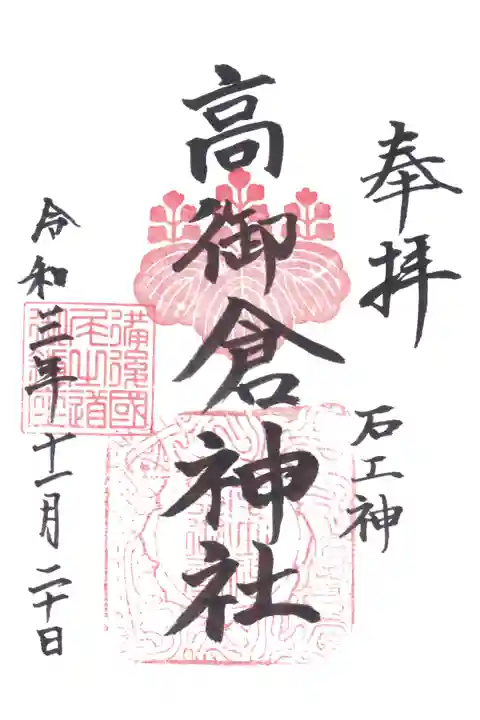 奉拝
石工神
高御倉神社
令和三年十一月二十日
備後國
尾之道